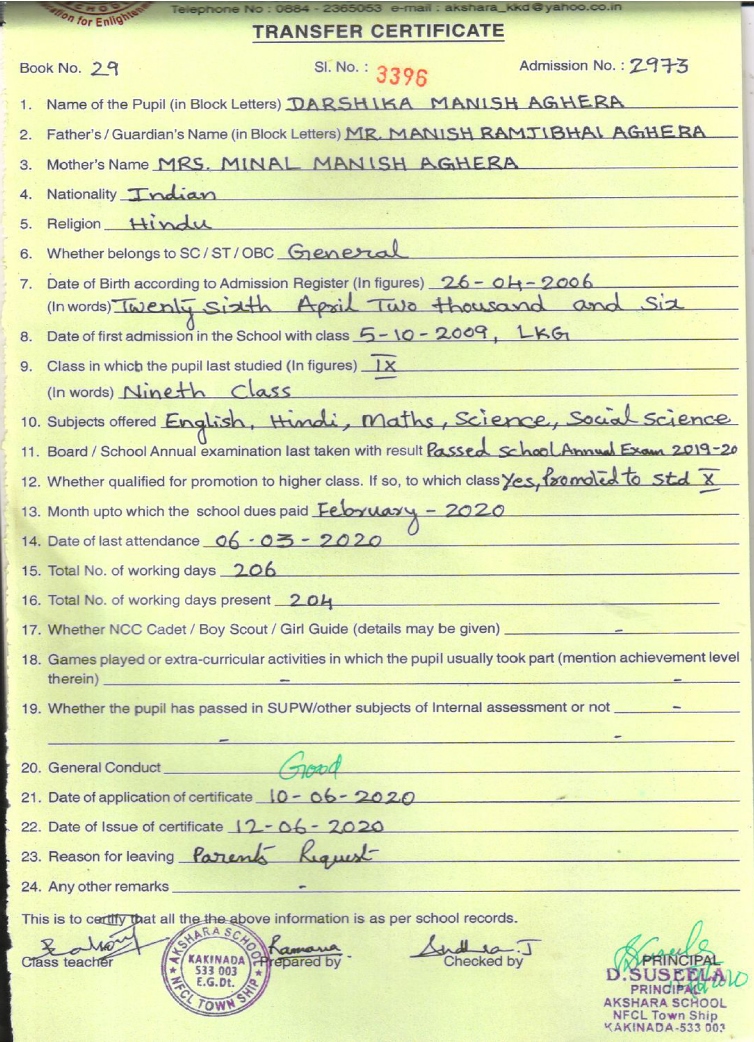 ation for Enlighten
Telephone No : 0884 - 2365053 e-mail : akshara_kkd@yahoo.co.in
TRANSFER CERTIFICATE
Book No. 29 Sl. No. : 3396 Admission No. : 2973
1. Name of the Pupil (in Block Letters) DARSHIKA MANISH AGHERA
2. Father's / Guardian's Name (in Block Letters) MR. MANISH RAMJIBHAI AGHERA
3. Mother's Name MRS. MINAL MANISH AGHERA
4. Nationality Indian
5. Religion Hindu
6. Whether belongs to SC / ST / OBC General
7. Date of Birth according to Admission Register (In figures) 26-04-2006
(In words) Twenty sixth April Two thousand and Six
8. Date of first admission in the School with class 5-10-2009, LKG
9. Class in which the pupil last studied (In figures) IX
(In words) Nineth Class
10. Subjects offered English, Hindi, Maths, Science, Social Science
11. Board / School Annual examination last taken with result Passed School Annual Exam 2019-20
12. Whether qualified for promotion to higher class. If so, to which class Yes, Promoted to Std X
13. Month upto which the school dues paid February - 2020
14. Date of last attendance 06-03-2020
15. Total No. of working days 206
16. Total No. of working days present 204
17. Whether NCC Cadet / Boy Scout / Girl Guide (details may be given) -
18. Games played or extra-curricular activities in which the pupil usually took part (mention achievement level
therein) - -
19. Whether the pupil has passed in SUPW/other subjects of Internal assessment or not -
- -
20. General Conduct Good
21. Date of application of certificate 10-06-2020
22. Date of Issue of certificate 12-06-2020
23. Reason for leaving Parents Request
24. Any other remarks -
This is to certify that all the the above information is as per school records.
Ramana Sudha.J
Class teacher Prepared by Checked by PRINCIPAL
AKSHARA SCHOOL
KAKINADA
533 003
E.G.Dt.
NFCL TOWN SHIP
D.SUSEELA
PRINCIPAL
AKSHARA SCHOOL
NFCL Town Ship
KAKINADA-533 003